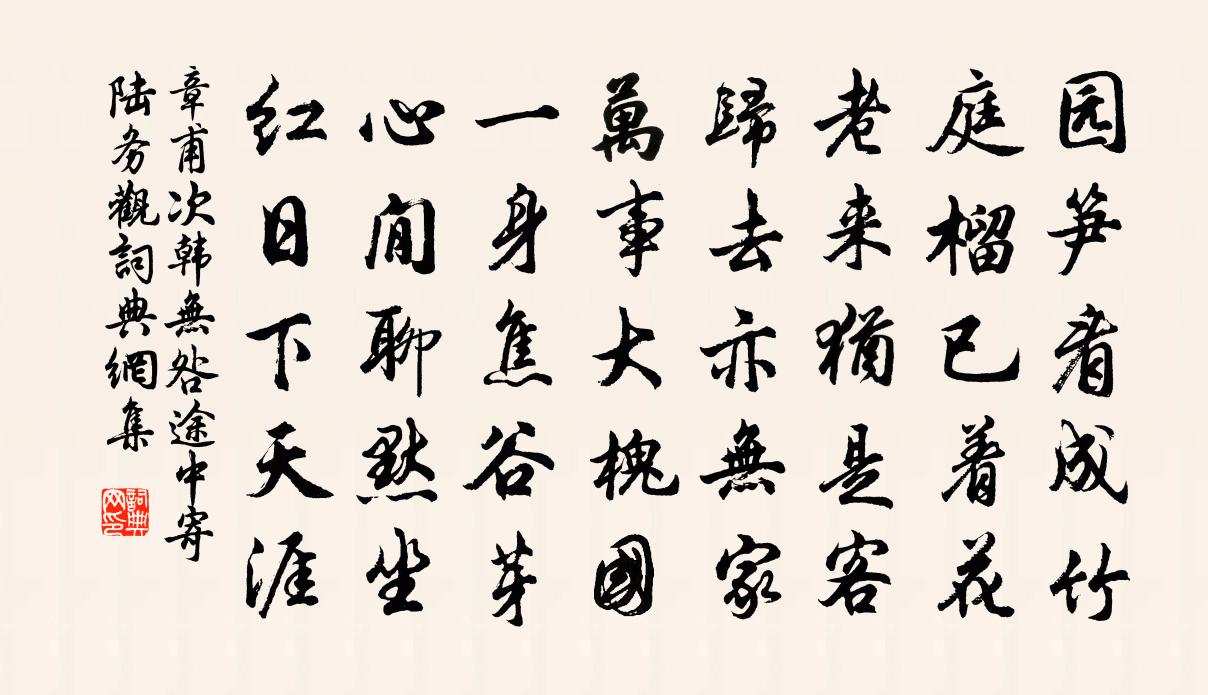 园笋看成竹
庭榴已着花
老来猶是客
歸去亦無家
萬事大槐國
一身焦谷芽
心閒聊默坐
红日下天涯
章甫次韩無咎途中寄
陆务觀詞典網集
詞典网印